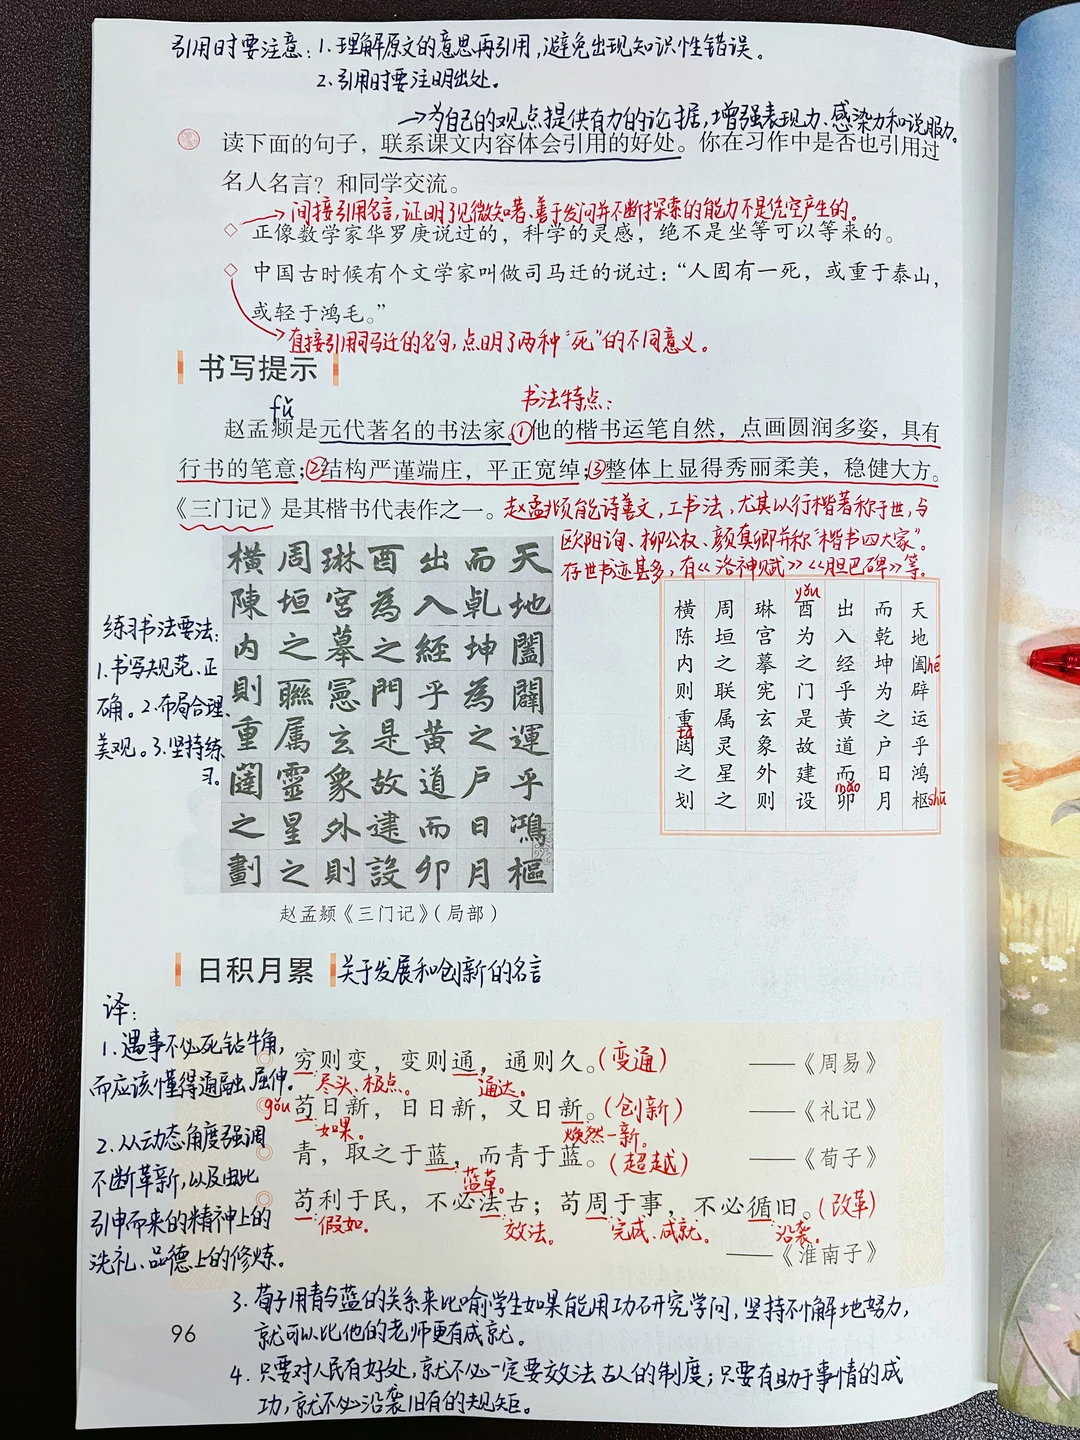 引用时要注意：1.理解原文的意思再引用，避免出现知识性错误。
2.引用时要注明出处。
→为自己的观点提供有力的论据，增强表现力、感染力和说服力。
读下面的句子，联系课文内容体会引用的好处。你在习作中是否也引用过
名人名言？和同学交流。
→间接引用名言，证明了见微知著、善于发问并不断探索的能力不是凭空产生的。
◇ 正像数学家华罗庚说过的，科学的灵感，绝不是坐等可以等来的。
◇ 中国古时候有个文学家叫做司马迁的说过：“人固有一死，或重于泰山，
或轻于鸿毛。”
直接引用司马迁的名句，点明了两种“死”的不同意义。
书写提示
fǔ
书法特点：
赵孟𫖯是元代著名的书法家。①他的楷书运笔自然，点画圆润多姿，具有
行书的笔意；②结构严谨端庄，平正宽绰；③整体上显得秀丽柔美，稳健大方。
《三门记》是其楷书代表作之一。赵孟𫖯能诗善文，工书法，尤其以行楷著称于世，与
欧阳询、柳公权、颜真卿并称“楷书四大家”。
存世书迹甚多，有《洛神赋》《胆巴碑》等。
天地闔闢運乎鴻樞
而乾坤為之戶日月
出入經乎黃道而卯
酉為之門是故建設
琳宮摹憲玄象外則
周垣之聯屬靈星之
橫陳內則重闥之劃
练习书法要法：
1.书写规范、正
确。2.布局合理、
美观。3.坚持练
习。
天地阖辟运乎鸿枢
hé
shū
而乾坤为之户日月
出入经乎黄道而卯
mǎo
yǒu
酉为之门是故建设
琳宫摹宪玄象外则
周垣之联属灵星之
横陈内则重闼之划
tà
赵孟𫖯《三门记》（局部）
日积月累 关于发展和创新的名言
译：
1.遇事不必死钻牛角，
而应该懂得通融、屈伸。
2.从动态角度强调
不断革新，以及由此
引申而来的精神上的
洗礼、品德上的修炼。
穷则变，变则通，通则久。(变通) ——《周易》
尽头、极点。 通达。
gǒu
苟日新，日日新，又日新。(创新) ——《礼记》
如果。 焕然一新。
青，取之于蓝，而青于蓝。(超越) ——《荀子》
蓝草。
苟利于民，不必法古；苟周于事，不必循旧。(改革)
假如。 效法。 完成、成就。 沿袭。
——《淮南子》
3.荀子用青与蓝的关系来比喻学生如果能用功研究学问，坚持不懈地努力，
就可以比他的老师更有成就。
96
4.只要对人民有好处，就不必一定要效法古人的制度；只要有助于事情的成
功，就不必沿袭旧有的规矩。